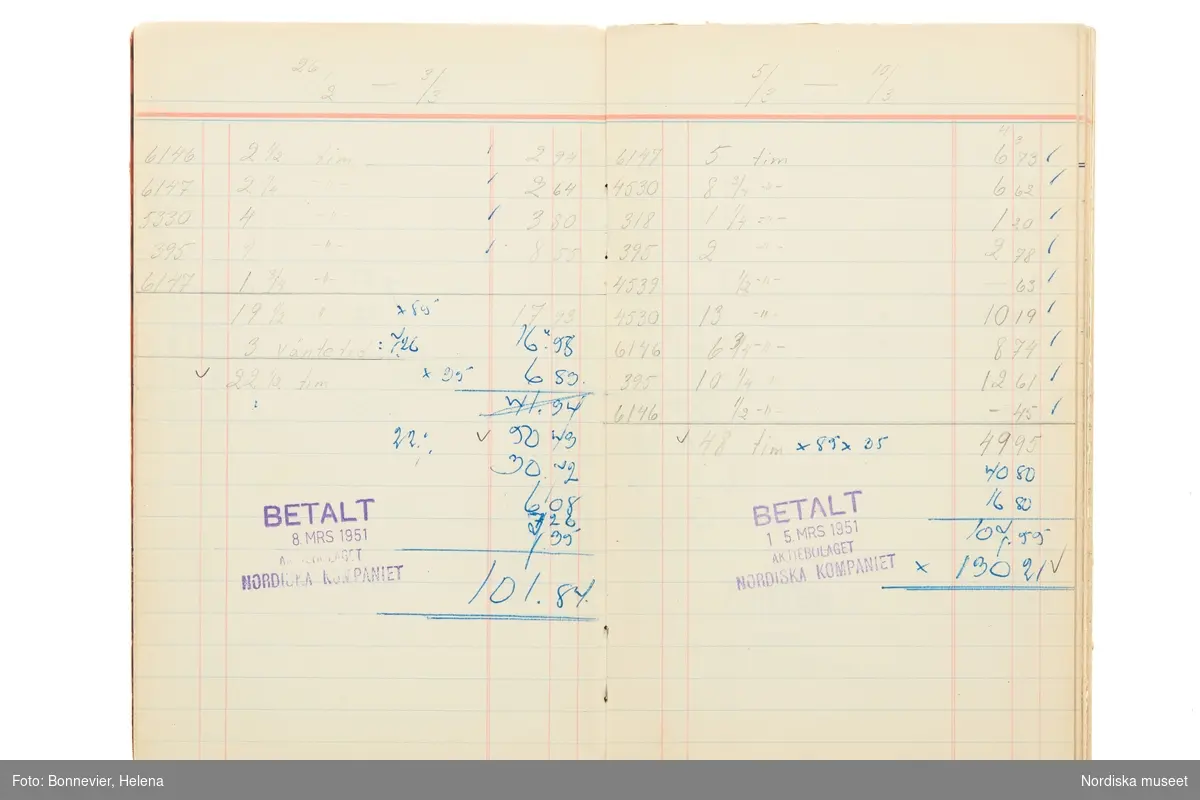 26/2 — 3/3
6146 2 1/2 tim 2 94
6147 2 1/4 -"- 2 64
5330 4 -"- 3 80
395 -"- 8 55
6147 1 3/4 -"-
19 1/2 " × 85 17 93
3 väntetid : 16.58
✓ 22 1/2 tim × 35 6 83.
41.94
22 ✓ 50 43
30.
6 08
7 26
1.35
BETALT
8. MRS 1951
AKTIEBOLAGET
NORDISKA KOMPANIET
101.84.
5/3 — 10/3
6147 5 tim 6 73
4530 8 3/4 -"- 6 62
318 1 1/4 -"- 1 20
395 2 -"- 2 78
4539 1/2 -"- — 63
4530 13 -"- 10 19
6146 6 3/4 -"- 8 74
395 10 1/4 " 12 61
6146 1/2 -"- - 45
✓ 48 tim × 85 × 35 49 95
40 80
16 80
BETALT
1 5. MRS 1951
AKTIEBOLAGET
NORDISKA KOMPANIET
107.55
× 130 21 ✓
Foto: Bonnevier, Helena
Nordiska museet